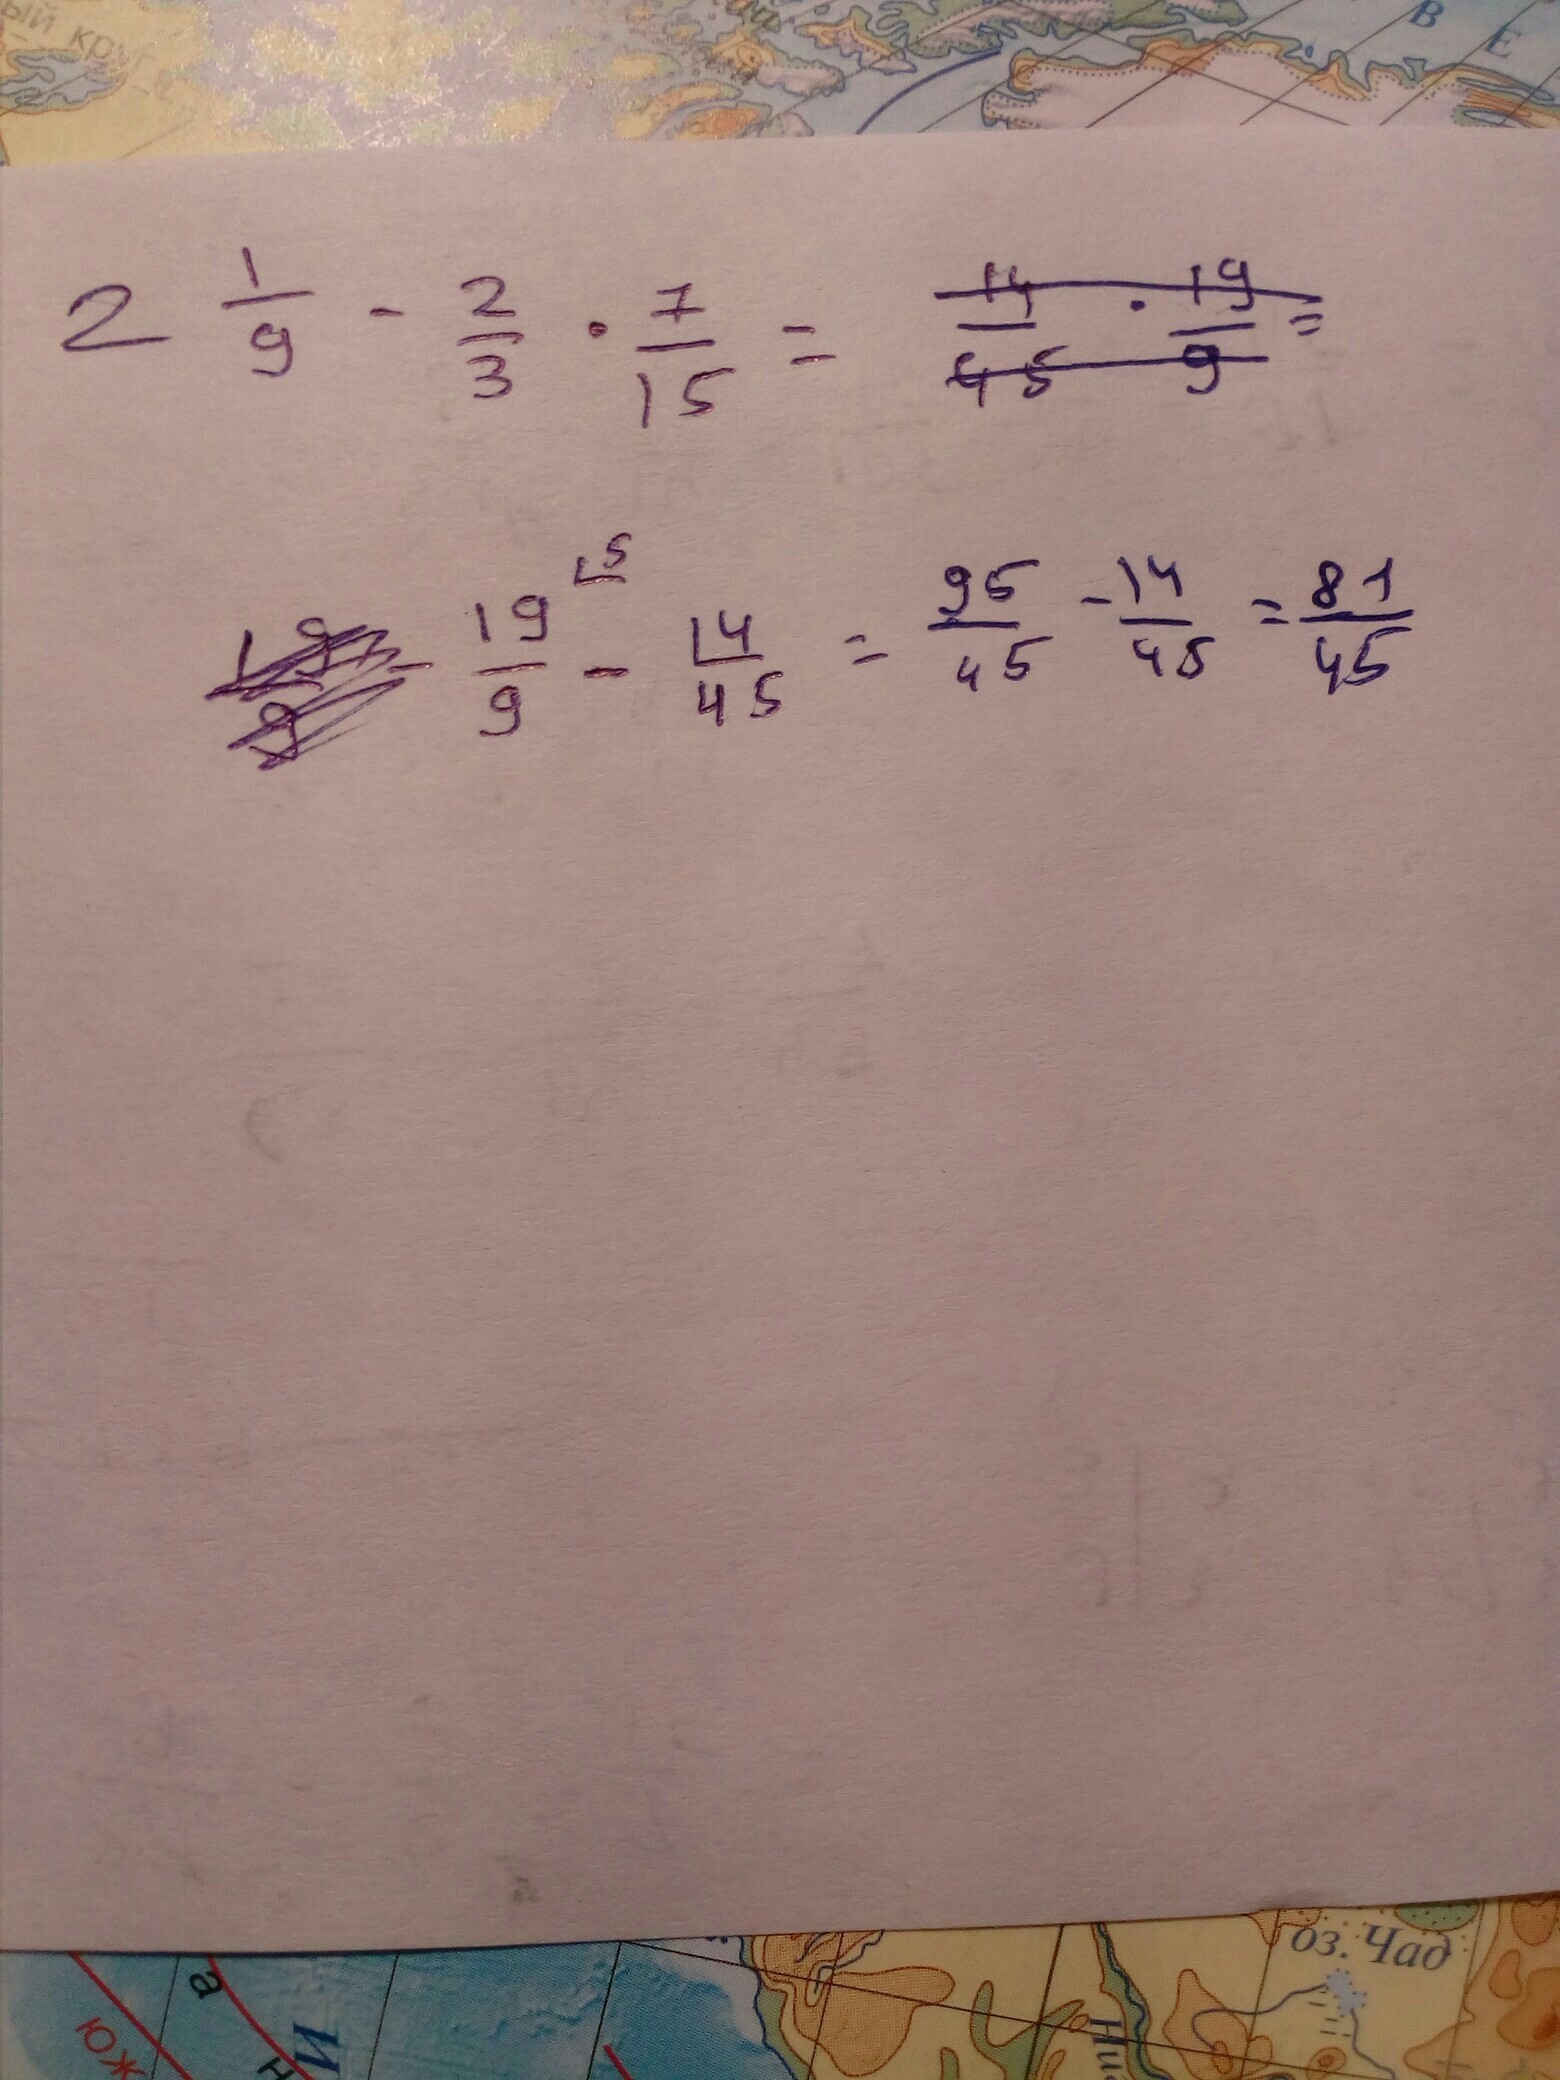 ый круг
В Е
2 1/9 - 2/3 · 7/15 = 14/45 · 19/9 =
19/9 - 19/9 ⌊5 - 14/45 = 95/45 - 14/45 = 81/45
оз. Чад
а
И
Ни
ЮЖ
н